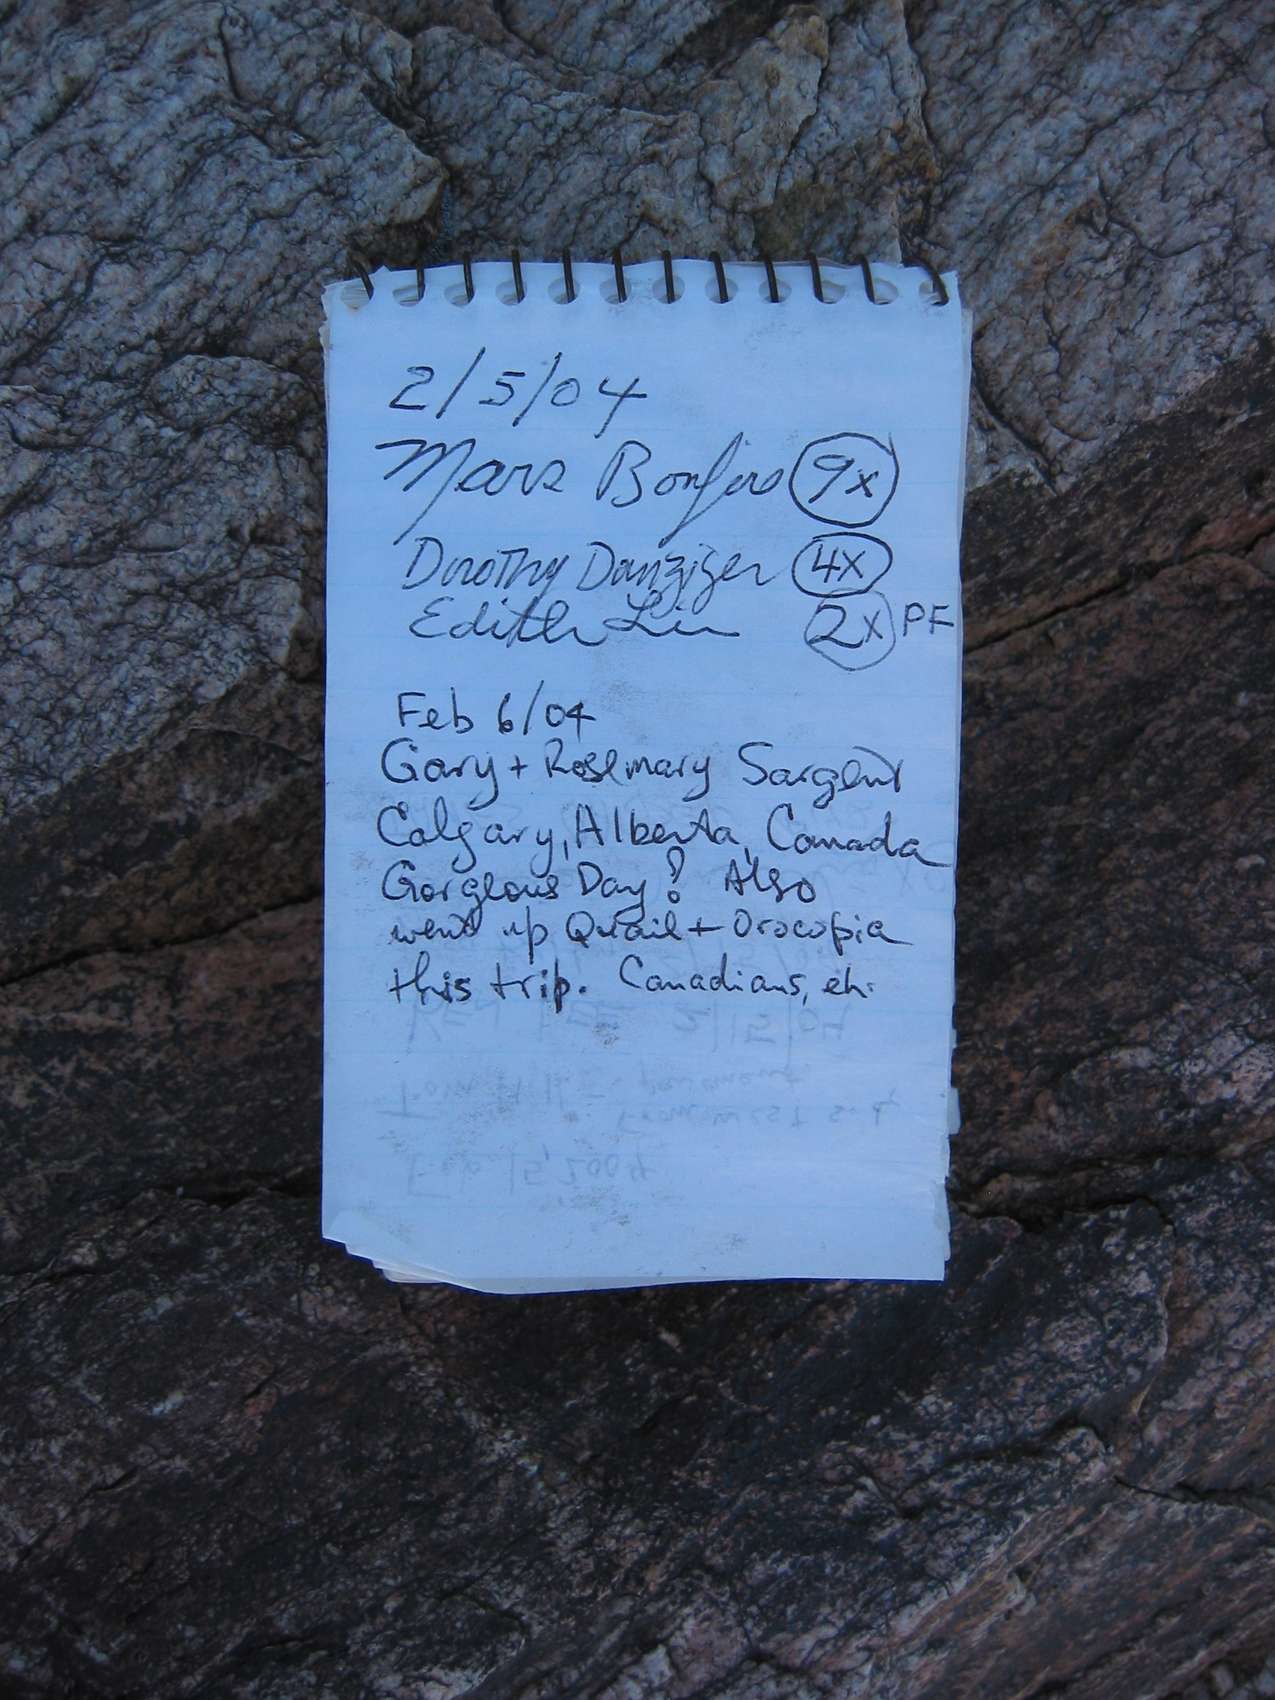 2/5/04
Mars Bonfire 9x
Dorothy Danziger 4x
Edith Liu 2x PF
Feb 6/04
Gary + Rosemary Sargent
Calgary, Alberta, Canada
Gorgeous Day! Also
went up Quail + Orocopia
this trip. Canadians, eh.